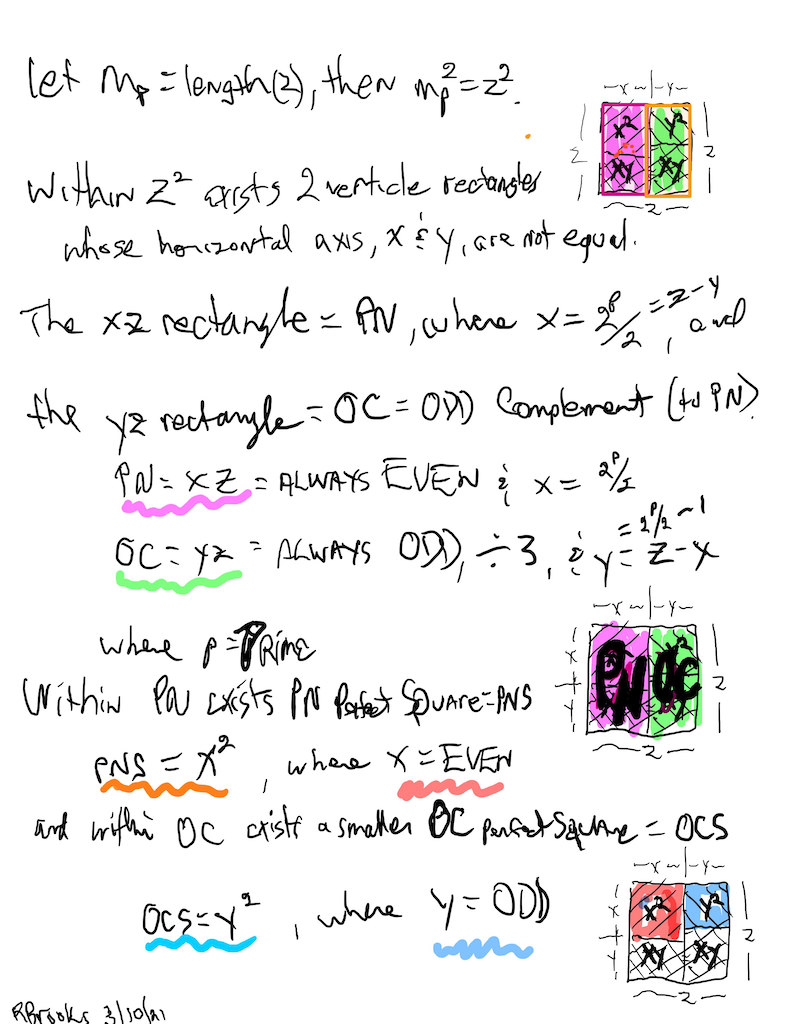 let Mp = length(z), then Mp² = z².
-x-|-y-
x² y²
z z
xy xy
-z-
Within z² exists 2 verticle rectangles
whose horizontal axis, x & y, are not equal.
The xz rectangle = PN, where x = 2^p/2 = z-y, and
the yz rectangle = OC = ODD Complement (to PN).
PN = xz = ALWAYS EVEN & x = 2^p/2
= 2^p/2 - 1
OC = yz = ALWAYS ODD, ÷3, & y = z-x
where p = PRIME
-x-|-y-
x
PN OC z
y
-z-
Within PN exists PN Perfect SQUARE = PNS
PNS = x², where x = EVEN
and within OC exists a smaller OC perfect Square = OCS
-x-|-y-
x x² y²
z
y xy xy
-z-
OCS = y², where y = ODD
RBrooks 3/10/21